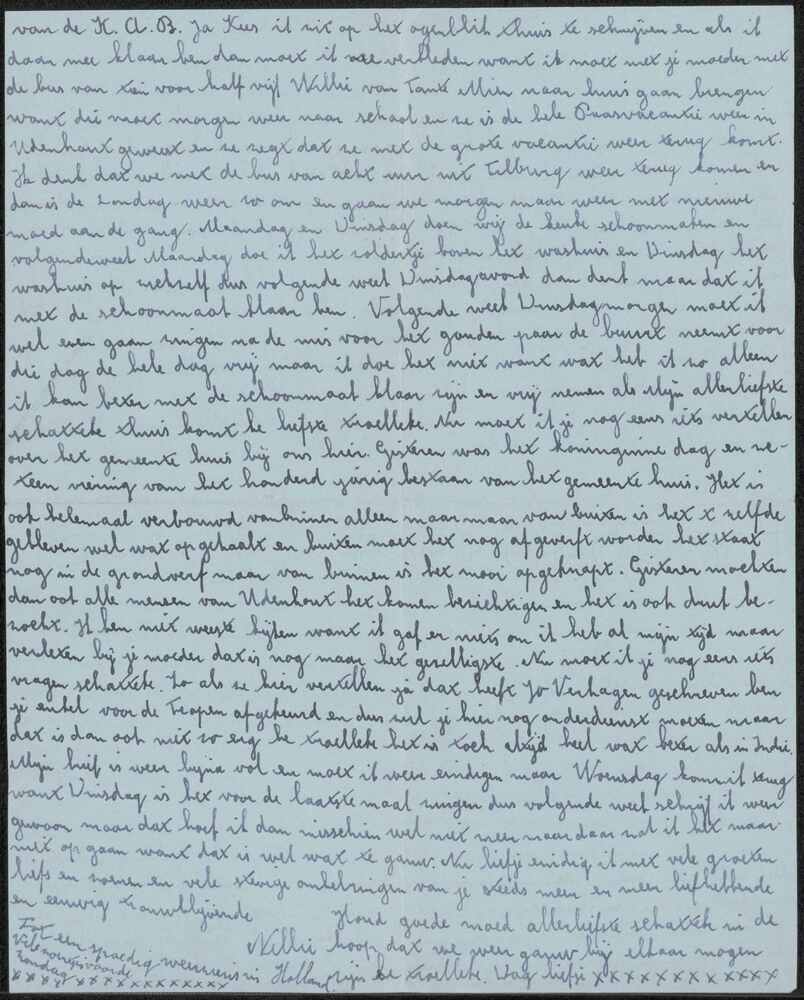 van de K.A.B. Ja Kees ik zit op het ogenblik thuis te schrijven en als ik
daar mee klaar ben dan moet ik mee verkleden want ik moet met je moeder met
de bus van tien voor half vijf Willie van Tante Mien naar huis gaan brengen
want die moet morgen weer naar school en ze is de hele Paasvacantie weer in
Udenhout geweest en ze zegt dat ze met de grote vacantie weer terug komt.
Ik denk dat we met de bus van acht uur uit Tilburg weer terug komen en
dan is de zondag weer zo om en gaan we morgen maar weer met nieuwe
moed aan de gang. Maandag en Dinsdag doen wij de keuke schoonmaken en
volgendeweek Maandag doe ik het zoldertje boven het washuis en Dinsdag het
washuis op zichzelf dus volgende week Dinsdagavond dan denk maar dat ik
met de schoonmaak klaar ben. Volgende week Dinsdagmorgen moet ik
wel even gaan zingen na de mis voor het gouden paar de buurt neemt voor
die dag de hele dag vrij maar ik doe het niet want wat heb ik zo alleen
ik kan beter met de schoonmaak klaar zijn en vrij nemen als Mijn allerliefste
schatteke thuis komt he liefste troelleke. Nu moet ik je nog eens iets vertellen
over het gemeente huis bij ons hier. Gisteren was het koninginne dag en me-
teen viering van het honderd jarig bestaan van het gemeente huis. Het is
ook helemaal verbouwd vanbinnen alleen maar maar van buiten is het x zelfde
gebleven wel wat opgehaalt en buiten moet het nog afgeverft worden het staat
nog in de grondverf maar van binnen is het mooi opgeknapt. Gisteren mochten
dan ook alle mensen van Udenhout het komen bezichtigen en het is ook druk be-
zocht. Ik ben niet weeste kijken want ik gaf er niets om ik heb al mijn tijd maar
versleten bij je moeder dat is nog maar het gezelligste. Nu moet ik je nog eens iets
vragen schatteke. Zo als ze hier vertellen ja dat heeft Jo Verhagen geschreven ben
je enkel voor de Tropen afgekeurd en dus zul je hier nog onderdienst moeten maar
dat is dan ook niet zo erg he troelleke het is toch altijd heel wat beter als in Indie.
Mijn brief is weer bijna vol en moet ik weer eindigen maar Woensdag kom ik terug
want Dinsdag is het voor de laatste maal zingen dus volgende week schrijf ik weer
gewoon maar dat hoef ik dan misschien wel niet meer maar daar zal ik het maar
niet op gaan want dat is wel wat te gauw. Nu liefje eindig ik met vele groeten
liefs en zoenen en vele stevige omhelzingen van je steeds meer en meer liefhebbende
en eeuwig trouwblijvende Houd goede moed allerliefste schatteke in de
Nellie hoop dat we weer gauw bij elkaar mogen
Tot een spoedig weerziens in Holland zijn he troelleke. Dag liefje xxxxxxxxxxxx
Zondag
xxxxxxxxxxxxxx